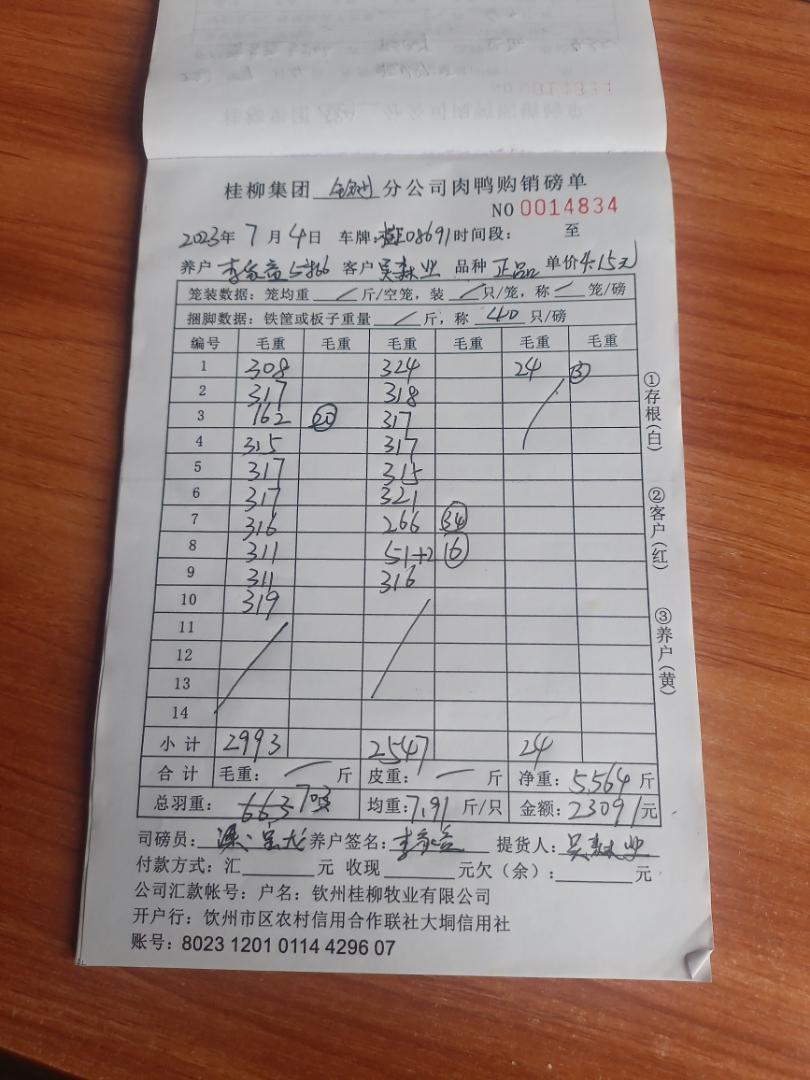 桂柳集团 钦州 分公司肉鸭购销磅单
NO 0014834
2023年 7月 4日 车牌:桂E08691 时间段: 至
养户 李家益 客户 吴森业 品种 正品 单价4.15元
笼装数据: 笼均重 / 斤/空笼, 装 / 只/笼, 称 / 笼/磅
捆脚数据: 铁筐或板子重量 / 斤, 称 40 只/磅
编号 毛重 毛重 毛重 毛重 毛重 毛重
1 308 324 24 ③
2 317 318
3 162 317
4 315 317
5 317 315
6 317 321
7 316 266 34
8 311 51+2 16
9 311 316
10 319
11
12
13
14
小计 2993 2547 24
合计 毛重: / 斤 皮重: / 斤 净重: 5564 斤
总羽重: 703 均重: 7.91 斤/只 金额: 23091元
司磅员: 养户签名: 李家益 提货人: 吴森业
付款方式: 汇 元 收现 元欠(余): 元
公司汇款帐号: 户名: 钦州桂柳牧业有限公司
开户行: 钦州市区农村信用合作联社大垌信用社
账号: 8023 1201 0114 4296 07
①存根(白)
②客户(红)
③养户(黄)